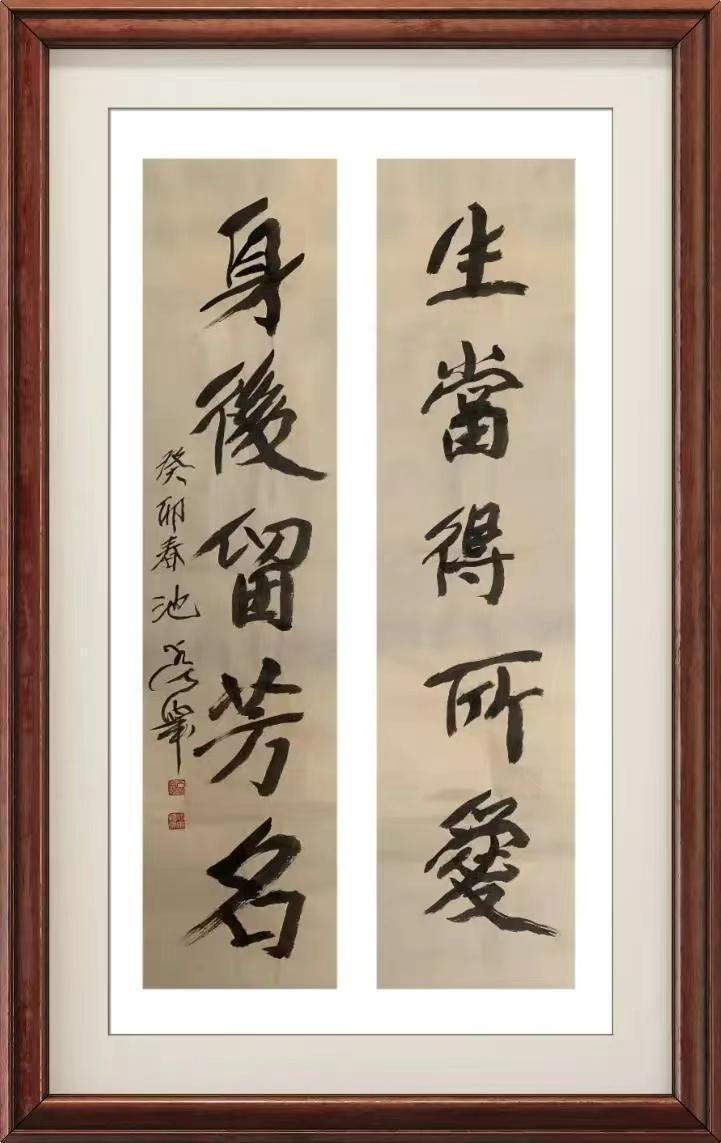 生當得所愛
身後留芳名
癸卯春池